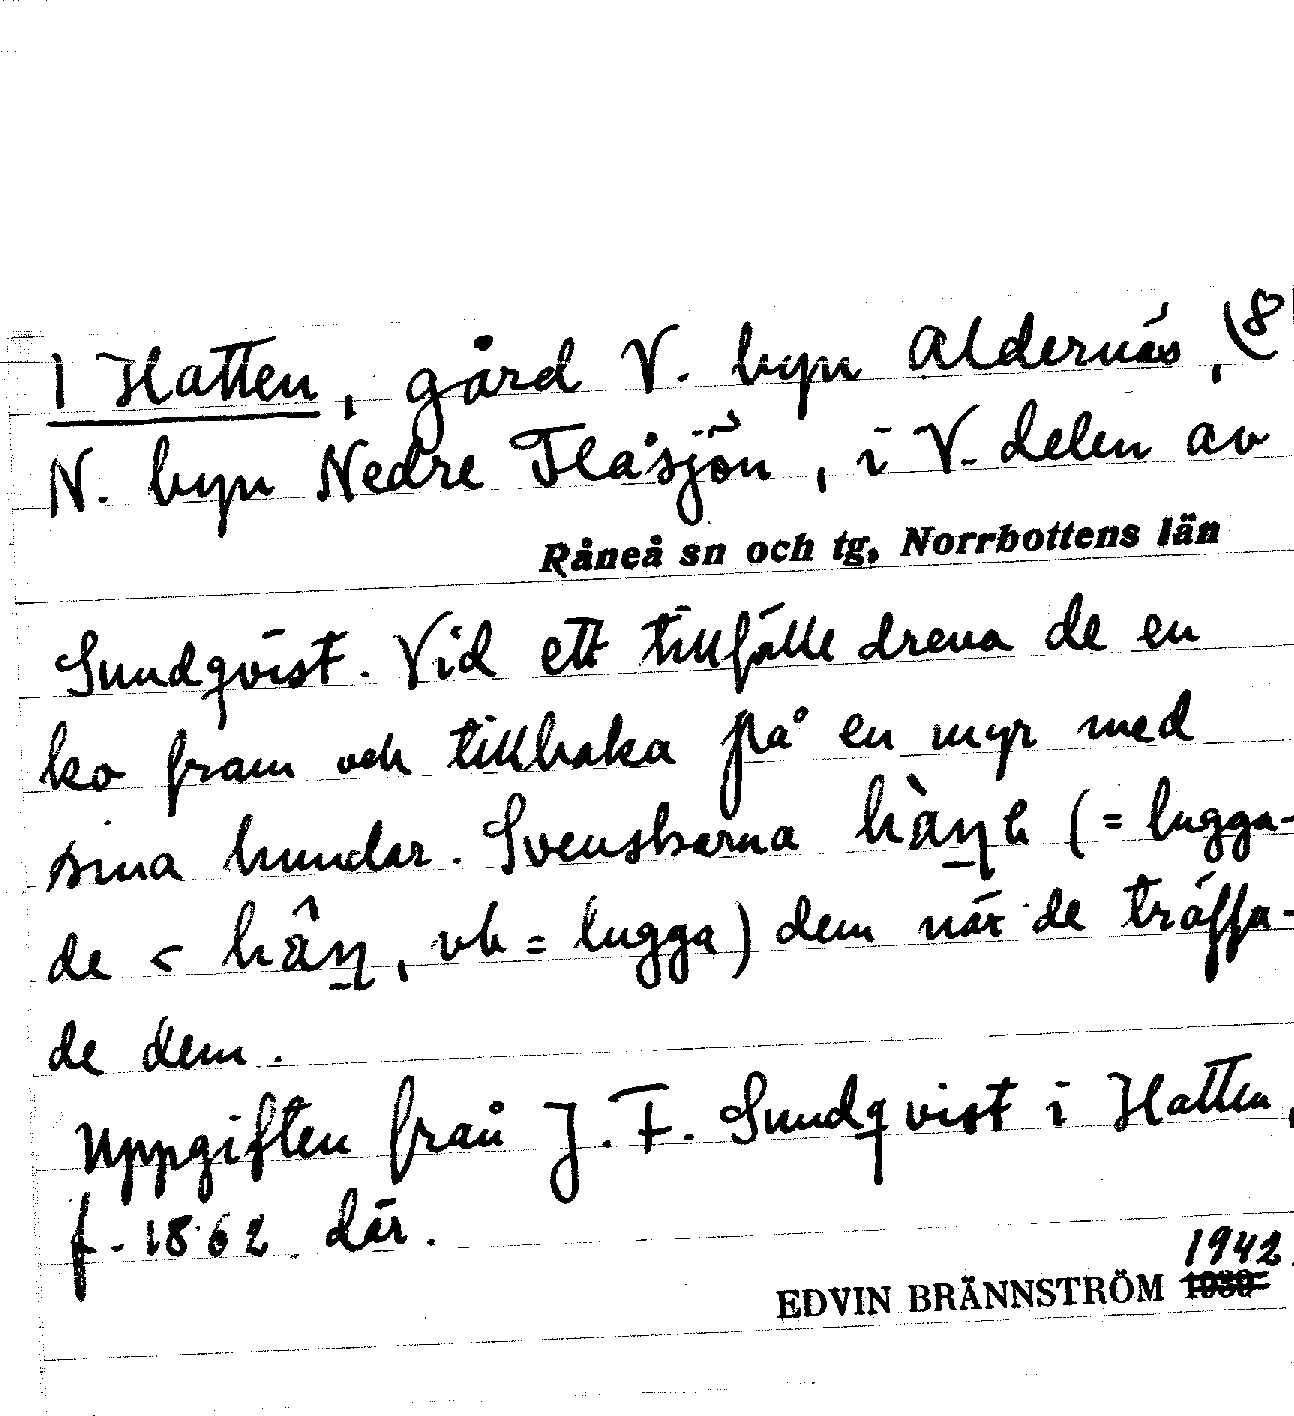 1 Hatten, gård V. byn Aldernäs, (8
N. byn Nedre Flåsjön, i V. delen av
Råneå sn och tg, Norrbottens län
Sundqvist. Vid ett tillfälle dreva de en
ko fram och tillbaka på en myr med
sina hundar. Svenskarna (= lugga-
de < , vb = lugga) dem när de träffa-
de dem.
Uppgiften från J. F. Sundqvist i Hatten,
f. 1862 där.
1942
EDVIN BRÄNNSTRÖM 1930